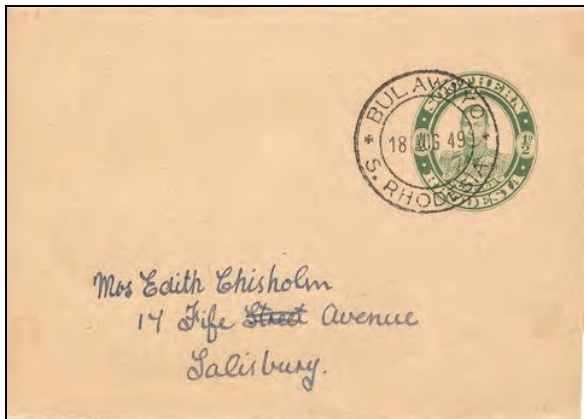 BULAWAYO
18 AUG 49
S. RHODESIA
SOUTHERN
½
RHODESIA
Mrs Edith Chisholm
17 Fife Street Avenue
Salisbury.